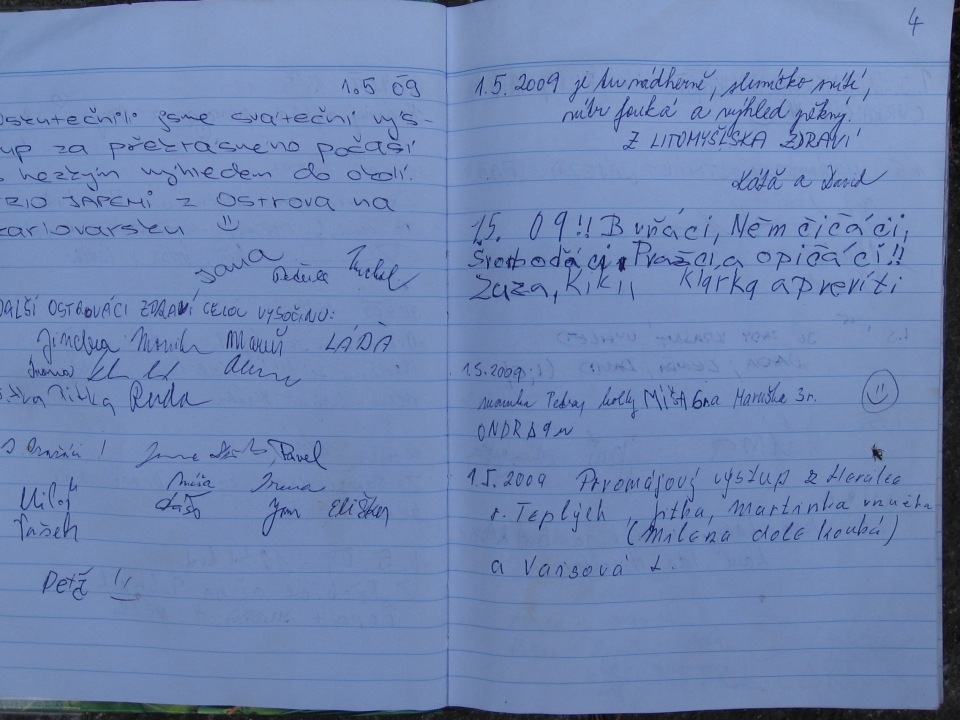 1.5 09
oskutečnili jsme sváteční výs-
up za překrásného počasí
s hezkým výhledem do okolí.
TRIO JAPEMI z Ostrova na
karlovarsku
Jana Michal
DALŠÍ OSTROVÁCI ZDRAVÍ CELOU VYSOČINU:
Jindra Monika Maruš LÁĎA
Ivana
Jitka Ruda
Pavel
Míša Irena
Miloš Dáša Jan Eliška
Vašek
Petr
4
1.5.2009 je tu nádherně, sluníčko svítí,
větr fouká a výhled pěkný.
Z LITOMYŠLSKA ZDRAVÍ
Káťa a David
1.5. 09!! Brňáci, Němčičáci,
Svobodáci, Prazáci a opičáci!!
Zuza, Kiki, Klárka a prevíti
1.5.2009
mamka holky MÍŠA 6na Maruška 3r.
ONDRA 9m
1.5.2009 Prvomájový výstup z Herálce
r. Teplých, Jitka, Martinka vnučka
(Milena dole koubá)
a Vaisová L.